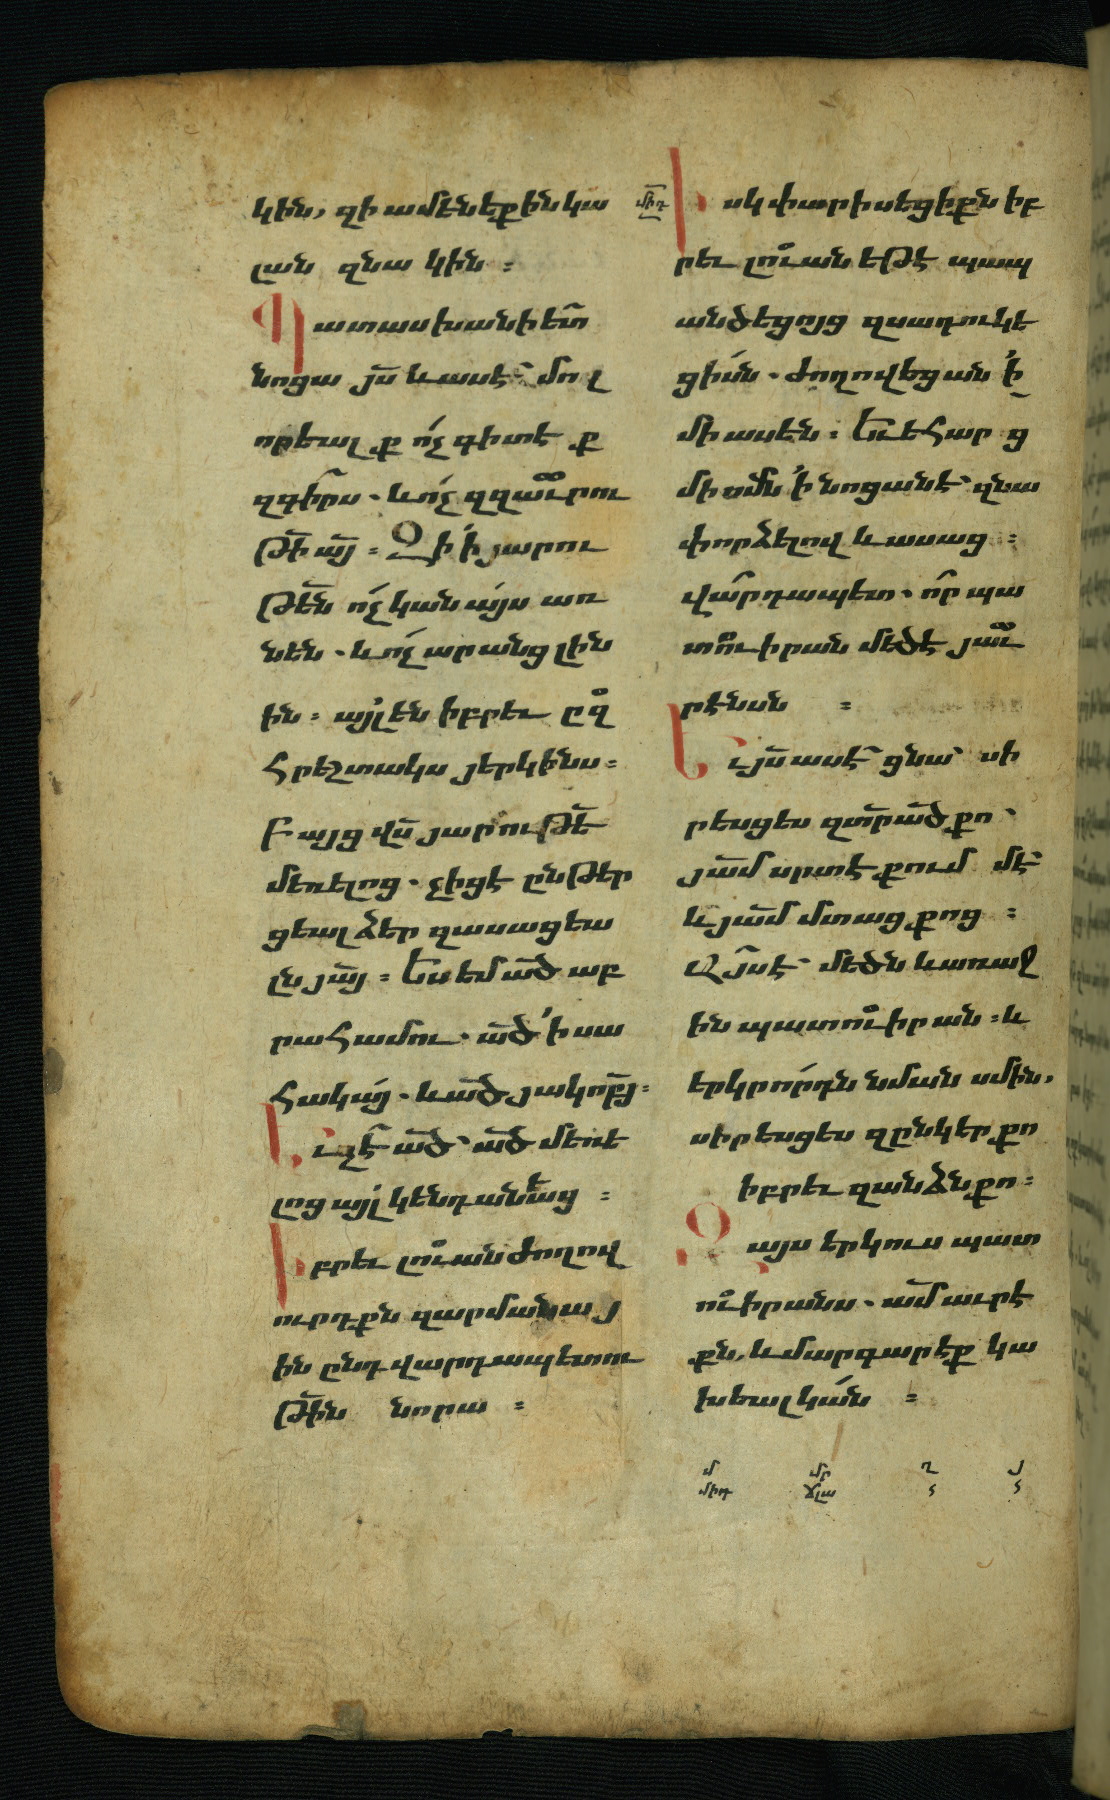 կին, զի ամենեքին կա
լան զնա կին :
Պատասխանի ետ
նոցա յս̄ և ասէ՝ մոլ
որեալ ք ո՛չ գիտէ ք
զգի̄րս. և ո՛չ զզաւ̄րու
թի̄ ա̄յ : Զի՛ ի յարու
թե̄ն ո՛չ կանա՛յս առ
նեն. և ո՛չ արանց լին
ին : այլ են իբրեւ ըզ
հրեշտակս յերկինս :
Բայց վս̄ յարութե̄
մեռելոց. չիցէ ընթեր
ցեալ ձեր զասացեա
լն յա̄յ : Ես եմ ա̄ծ աբ
րահամու. ա̄ծ՛ ի սա
հակա՛յ. և ա̄ծ յակոբա̄յ :
Եւ չէ̄ ա̄ծ՝ ա̄ծ մեռե
լոց այլ կենդանեաց :
Իբրեւ լուան ժողով
ուրդքն զարմանայ
ին ընդ վարդապետու
թի̄ն նորա :
մ̄իդ
Իսկ փարիսեցիքն իբ
րեւ լուան եթէ պապ
անձեցոյց զսադուկե
ցի՛սն. ժողովեցան ի՛
միասէն : Եւ եհարց
մի ոմն ի՛ նոցանէ՝ զնա
փորձելով և ասաց :
վա̄րդապետ. ո̄ր պա
տուիրան մեծ է յաւ̄
րէնսն :
Եւ յս̄ ասէ̄ ցնա՝ սի
րեսցես զտր̄ ա̄ծ քո՝
յա̄մ սրտէ քում մէ̄
և յա̄մ մտաց քոց :
Այս է՝ մեծն և առաջ
ին պատուիրան : և
երկրո՛րդն նման սմին,
սիրեսցես զընկեր քո
իբրեւ զանձն քո :
Զայս երկուս պատ
ուիրանս. ա̄մ աւրէ
քն, և մարգարէք կա
խեալ կա՛ն :
մ մը ղ ջ
միդ ճլա Հ Հ